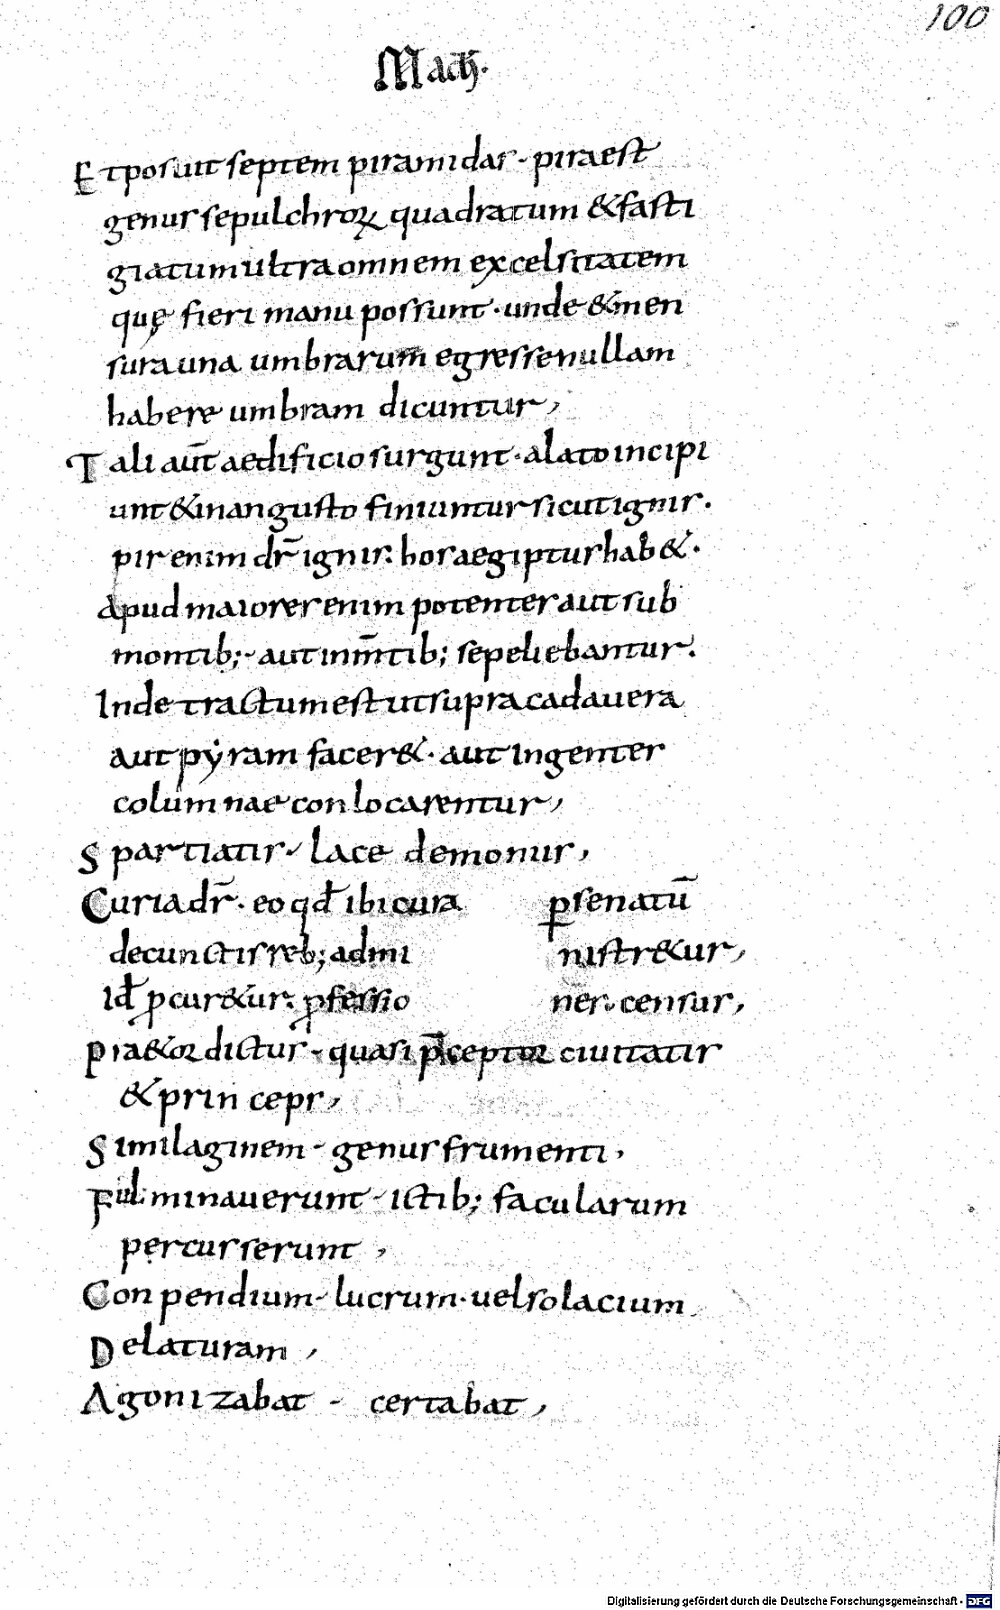 100
Mach.
Et posuit septem piramidas · pira est
genus sepulchroꝝ quadratum & fasti
giatum ultra omnem excelsitatem
quę fieri manu possunt · unde & men
sura una umbrarum egresse nullam
habere umbram dicuntur,
Tali aut̄ aedificio surgunt · a lato incipi
unt & in angusto finiuntur sicut ignis.
pir enim dr̄ ignis. hos aegiptus hab&.
Apud maiores enim potentes aut sub
montib; · aut in m̄tib; sepeliebantur.
Inde tractum est ut supra cadavera
aut pẏram facer& · aut ingentes
columnae conlocarentur,
Spartiatis · lacedemonus,
Curia dr̄ · eo qđ ibi cura ꝑ senatū
de cunctis reb; admi nistr&ur,
Iđ ꝓcur&ur. ꝓfessio nēs. census,
Pra&or dictus · quasi p̄ceptor civitatis
& princeps,
Similaginem · genus frumenti,
Fulminaverunt · ictib; facularum
percusserunt,
Conpendium · lucrum · vel solacium
Delaturam,
Agonizabat - certabat,
Digitalisierung gefördert durch die Deutsche Forschungsgemeinschaft - DFG